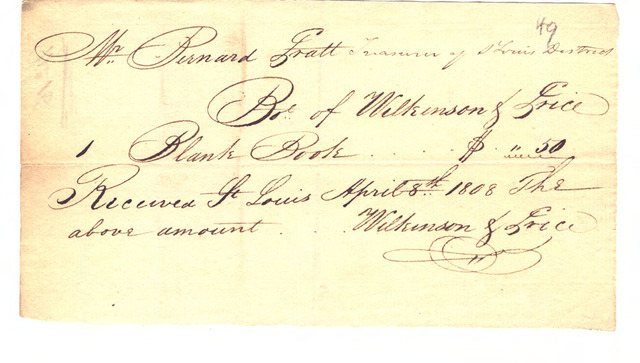 49
Mr. Bernard Pratt Treasurer of St Louis District
Bot. of Wilkinson & Price
1 Blank Book . . . . $ " 50
Received St. Louis April 8th. 1808 The
above amount . . . Wilkinson & Price